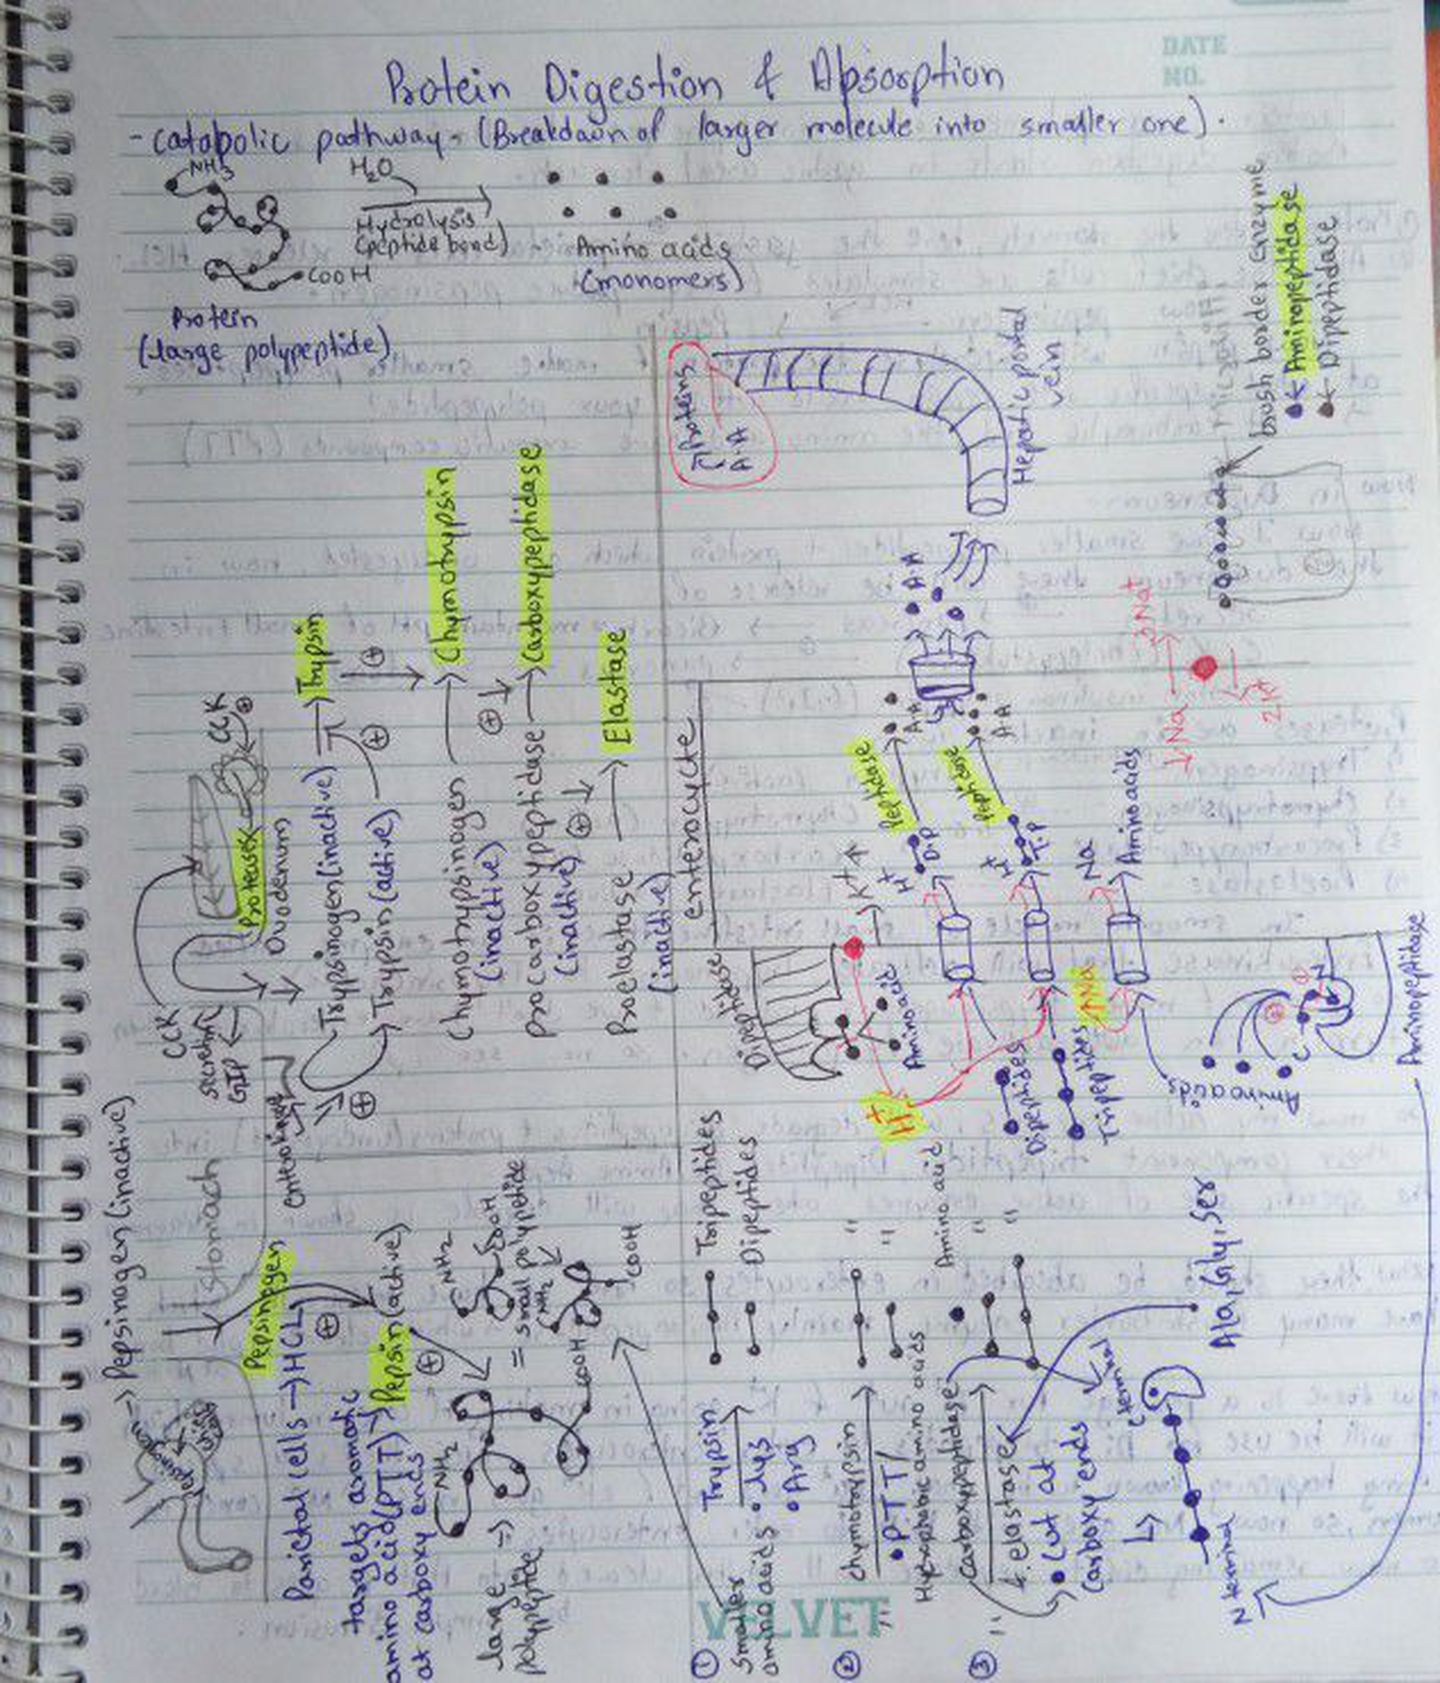 DATE
NO.
Protein Digestion & Absorption
- catabolic pathway - (Breakdown of larger molecule into smaller one).
NH3
H2O
Hydrolysis
(peptide bond)
COOH
Amino acids
(monomers)
Protein
(large polypeptide)
Pepsinogen → Pepsinogen (inactive)
chief
cells
stomach
Pepsinogen
Parietal cells → HCL
⊕
Pepsin (active)
targets aromatic
amino acid (PTT)
at carboxy ends
⊕
NH2
large →
polypeptide
COOH
NH2
COOH
= small polypeptide
NH2
COOH
CCK
secretin
GIP
CCK
⊕
Proteases
Duodenum
⊕
Trypsinogen (inactive) → Trypsin
Trypsin (active)
⊕
⊕
Chymotrypsinogen → Chymotrypsin
(inactive)
⊕
procarboxypeptidase → Carboxypeptidase
(inactive)
⊕
Proelastase → Elastase
(inactive)
① Smaller
amino acids
Trypsin
• lys
• Arg
Tripeptides
Dipeptides
② "
chymotrypsin
• PTT/
Hydrophobic amino acids
"
"
③ "
Carboxypeptidase
& elastase
• Cut at
Carboxy ends
Amino acid
"
"
C terminal
N terminal
Ala, Gly, Ser
enterocyte
Dipeptidase
Amino acid
H+
K+
Dipeptides
Tripeptides
Na
Amino acids
H+
Di P
Peptidase
A A
H+
Tri P
Peptidase
A A
Na
Amino acids
A A
Hepatic portal
vein
Proteins
A·A
↓Na
3Na+
2K+
Amino acids
C
N
Aminopeptidase
Microvilli
brush border enzyme
Aminopeptidase
Dipeptidase
VELVET